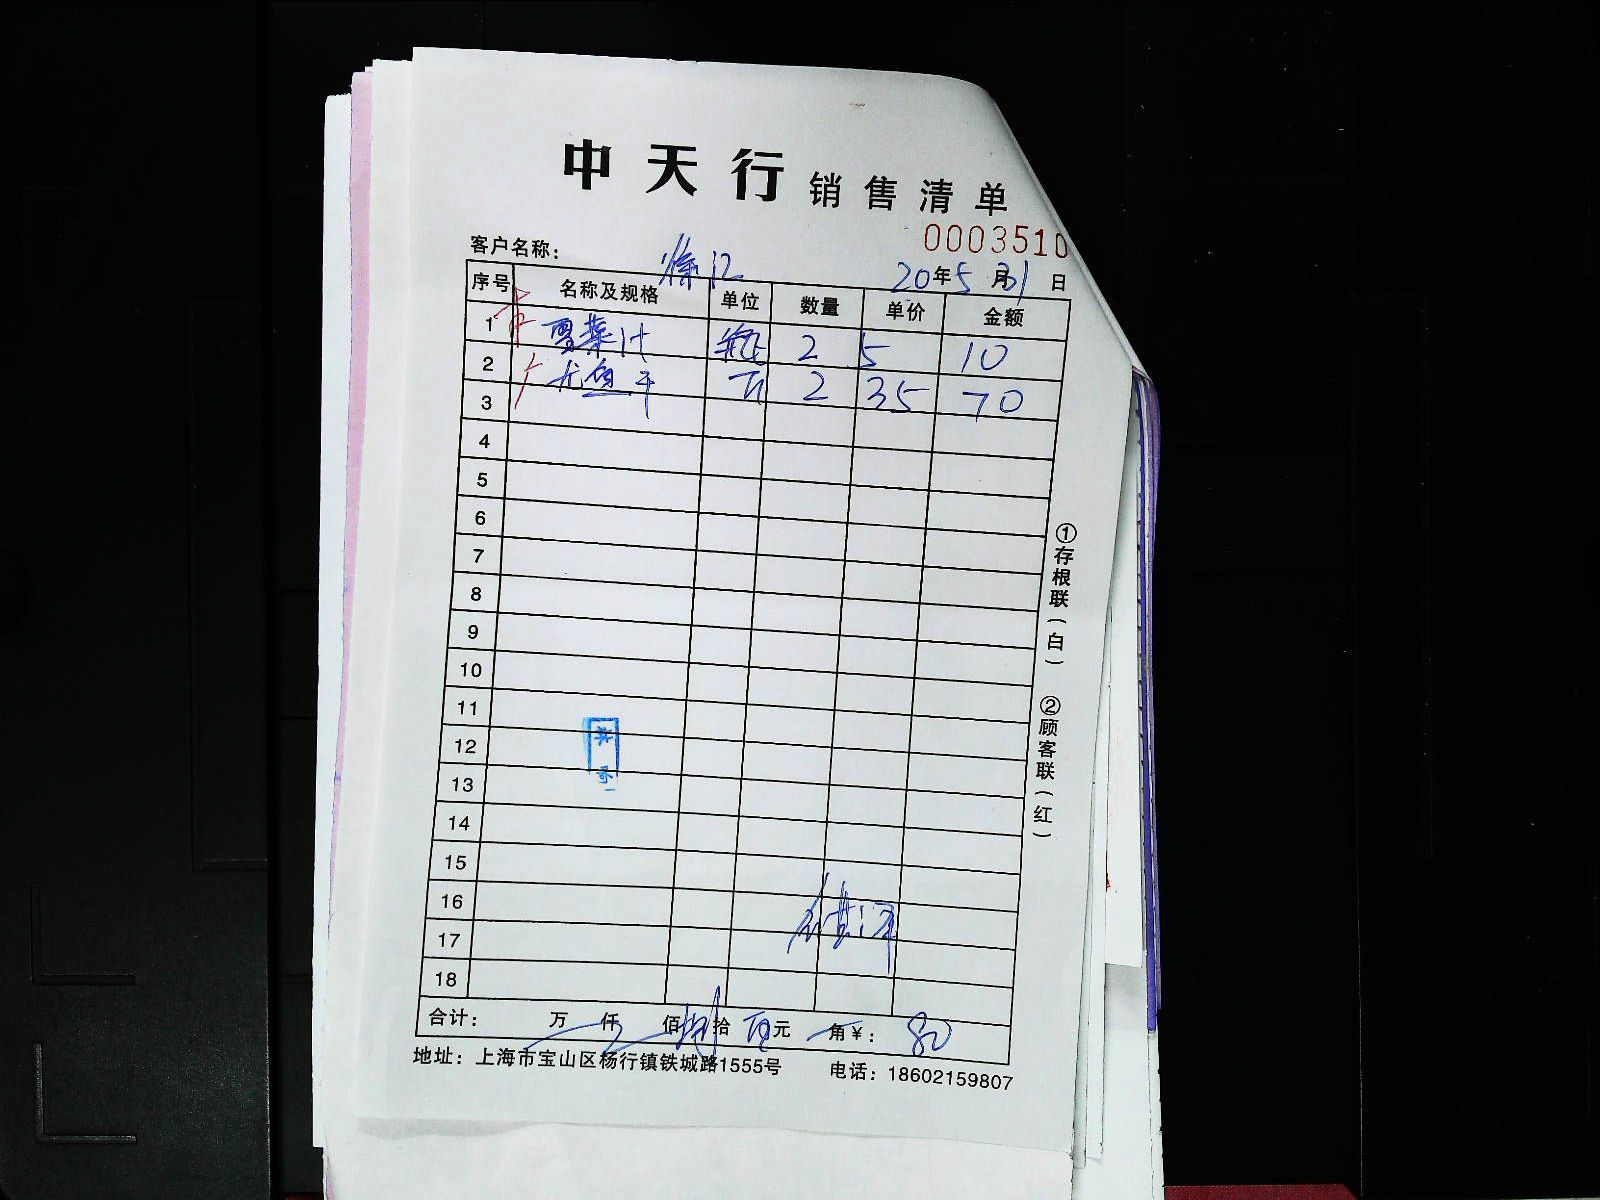 中天行 销售清单
0003510
客户名称: 徐汇 20年5月31日
序号 名称及规格 单位 数量 单价 金额
1 雪菜汁 瓶 2 5 10
2 尤鱼干 斤 2 35 70
3
4
5
6
7
8
9
10
11
12
13
14
15
16
17
18
合计: 万 仟 佰 捌拾 元 角 ¥: 80
地址: 上海市宝山区杨行镇铁城路1555号 电话: 18602159807
①存根联(白)
②顾客联(红)